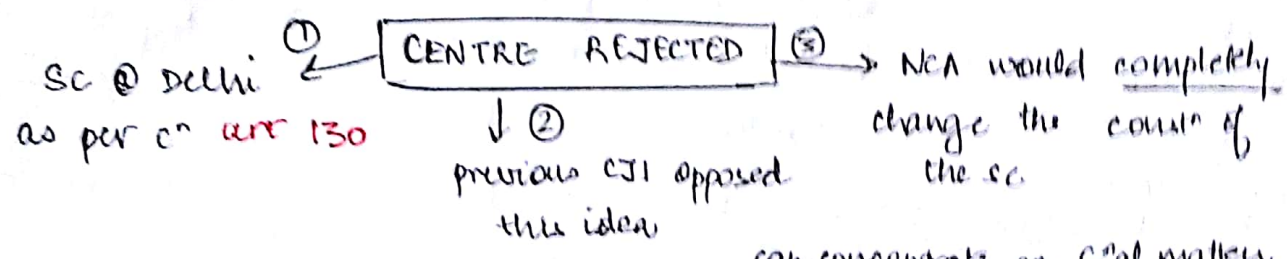 CENTRE REJECTED
①
SC @ Delhi
as per cⁿ art 130
②
previous CJI opposed
this idea
③
NCA would completely
change the constⁿ of
the SC
can concentrate on cⁿal matters